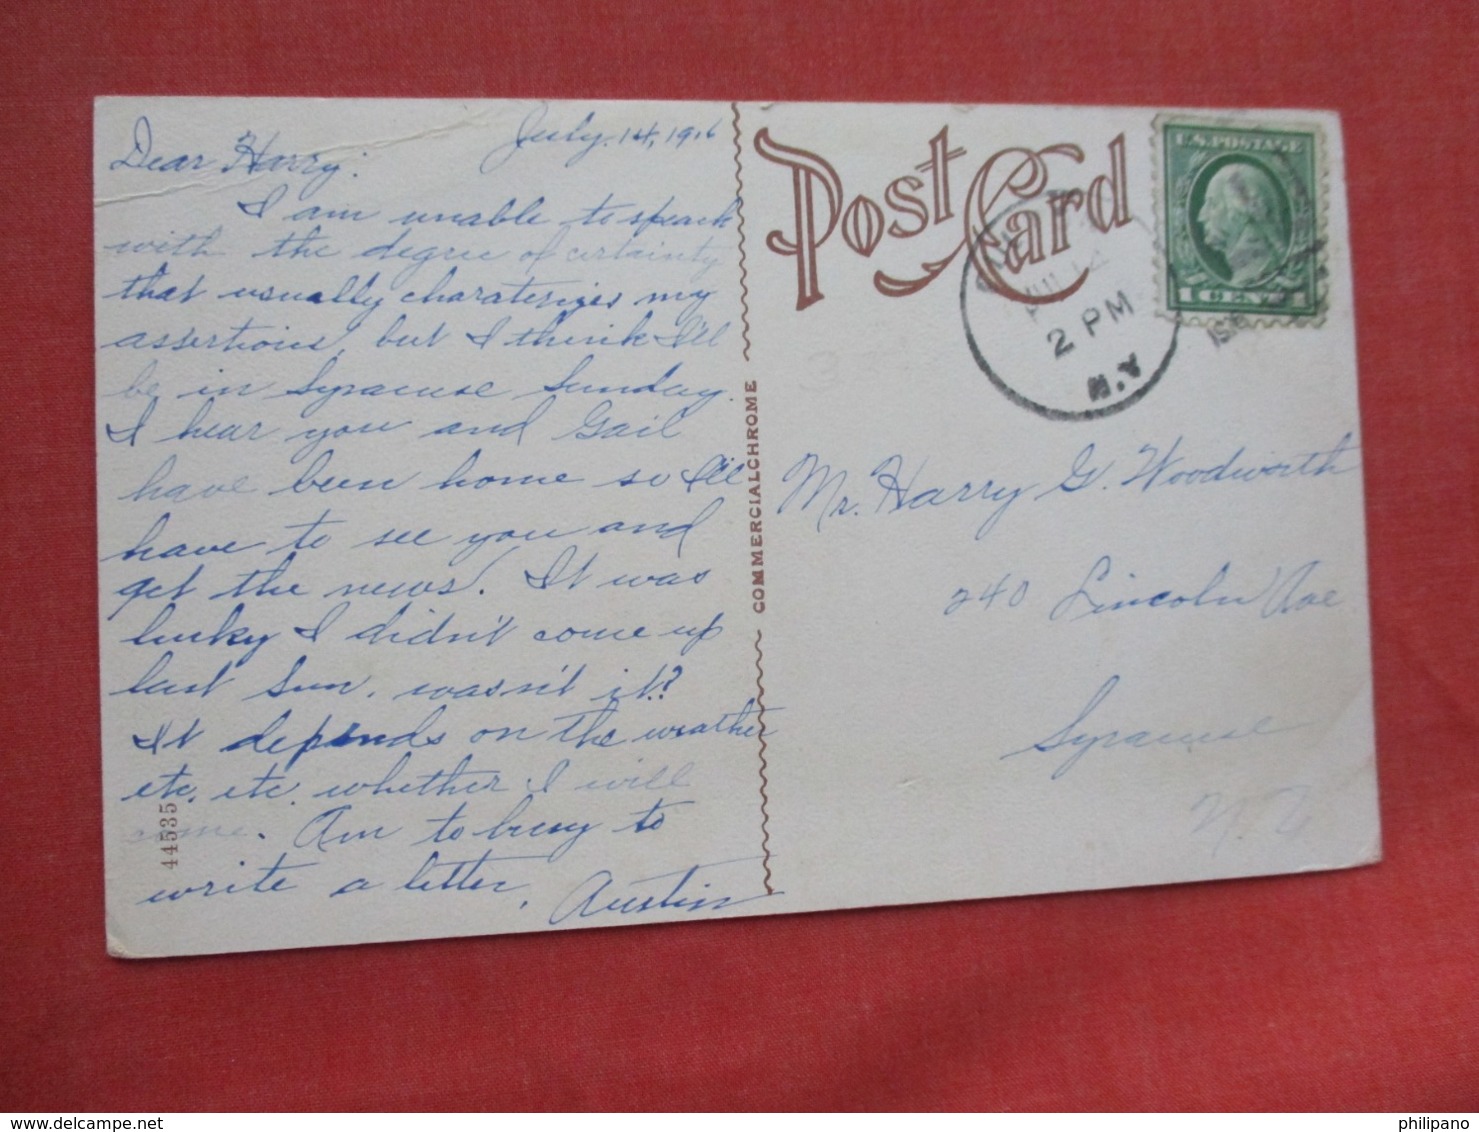 July 14, 1916
Dear Harry:
I am unable to speak
with the degree of certainty
that usually charaterizes my
assertions, but I think I'll
be in Syracuse Sunday.
I hear you and Gail
have been home so I'll
have to see you and
get the news. It was
lucky I didn't come up
last Sun. wasn't it?
It depends on the weather
etc. etc. whether I will
come. Am to busy to
write a letter.
Austin
44535
COMMERCIALCHROME
Post Card
2 PM
N.Y
U.S. POSTAGE
1 CENT 1
Mr. Harry G. Woodworth
240 Lincoln Ave
Syracuse
N.Y.
philipano